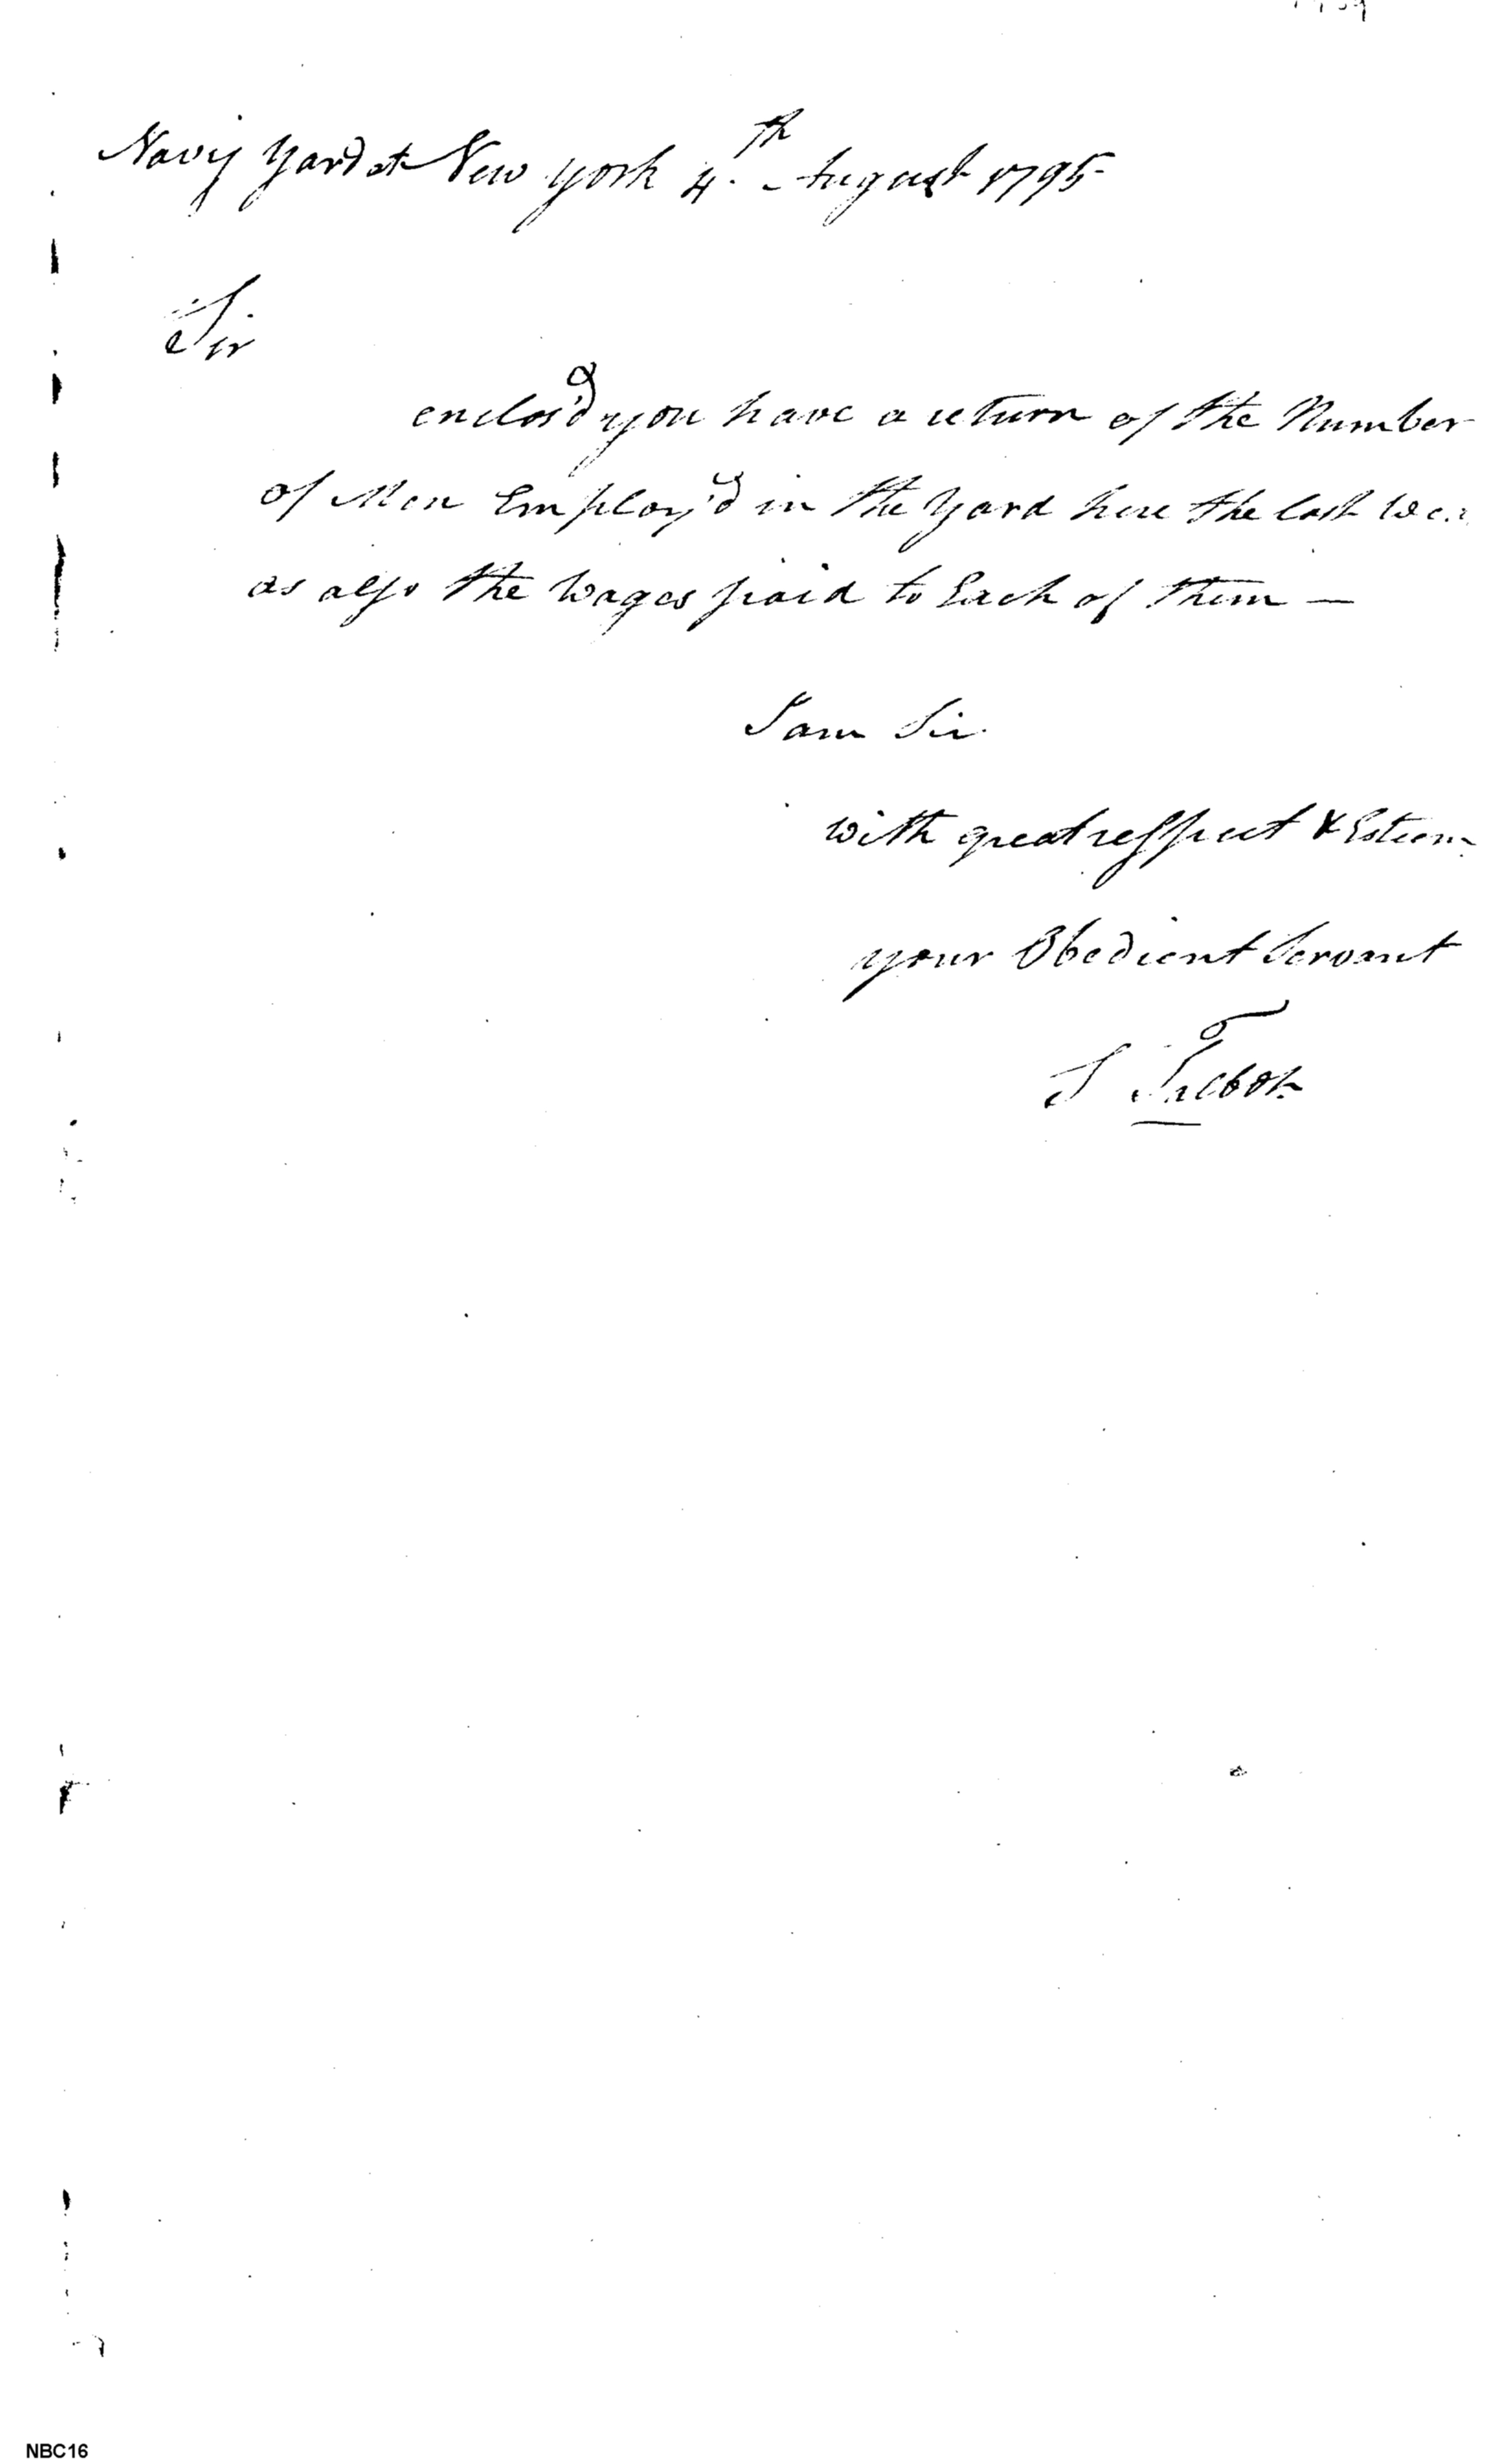 Navy Yard at New York 4.th August 1795
Sir
enclos'd you have a return of the Number
of Men Employ'd in the Yard here the last
as also the Wages paid to Each of them —
I am Sir
with great respect & Esteem
your Obedient Servant
S Talbot
NBC16